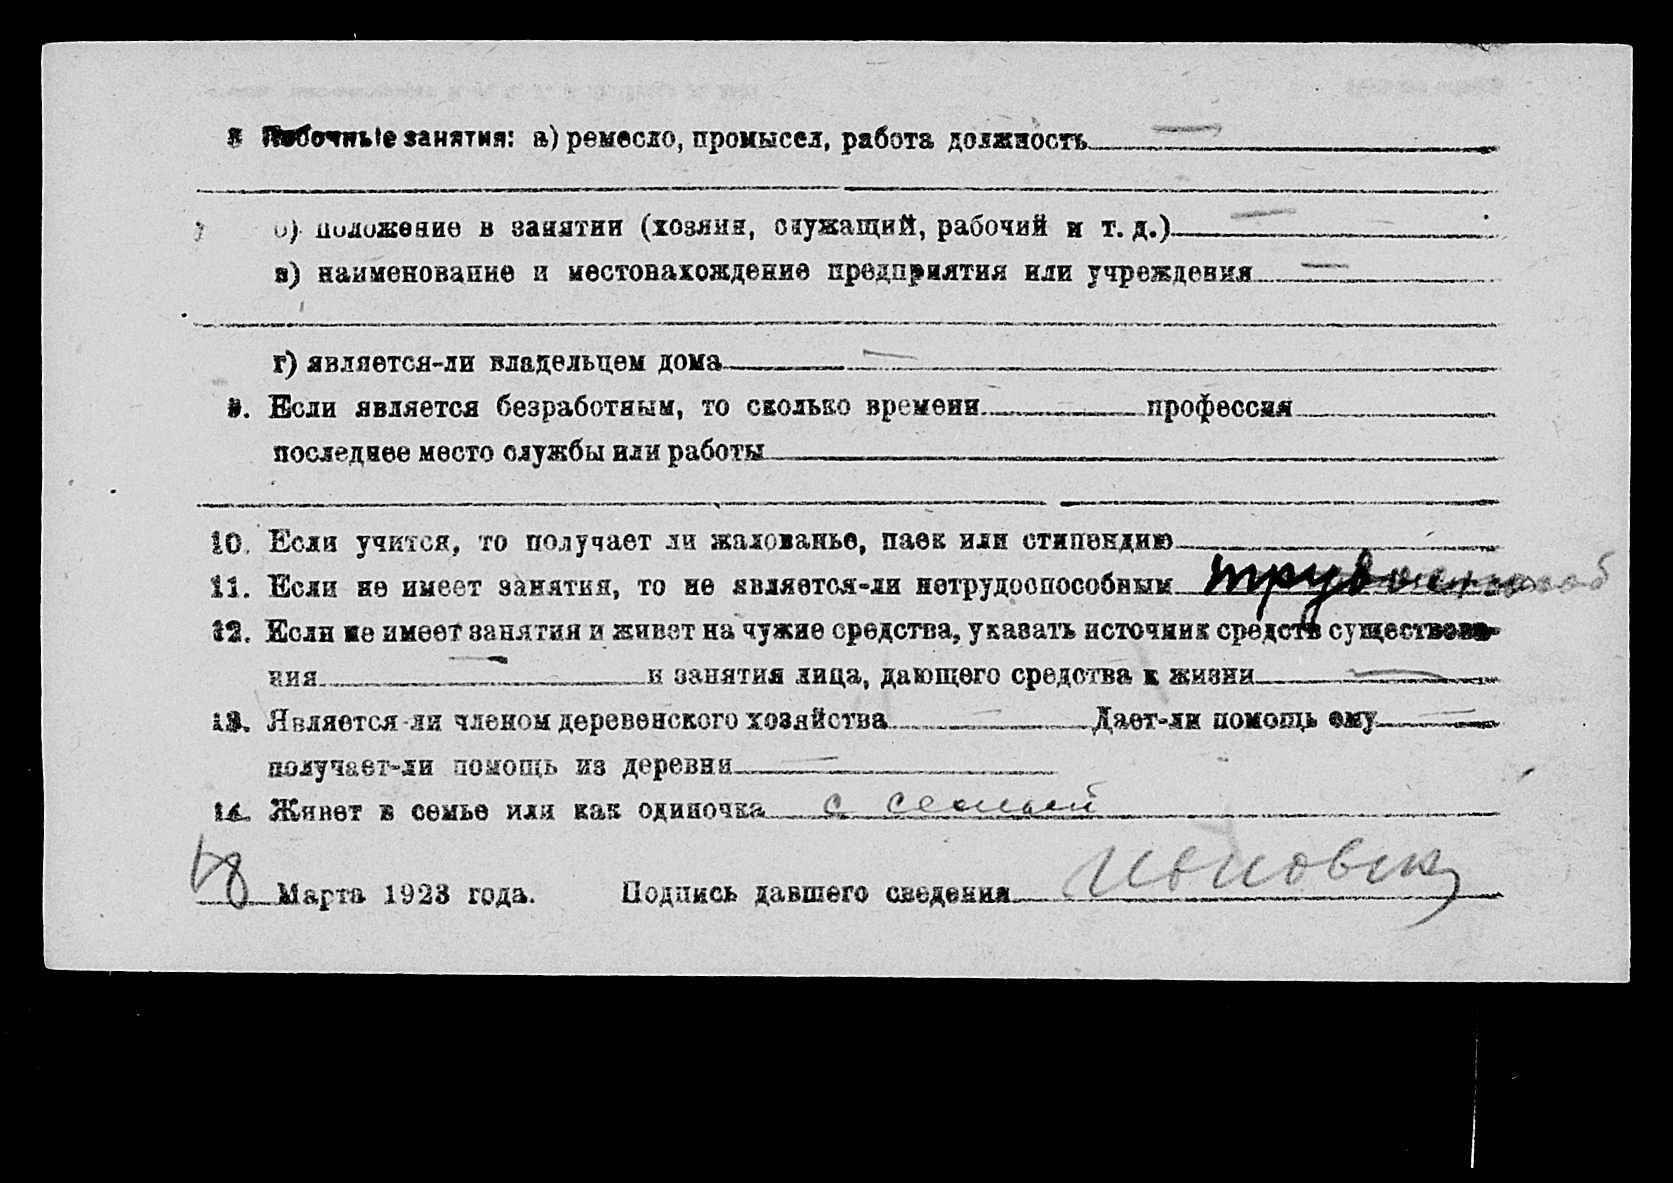 8 Побочные занятия: а) ремесло, промысел, работа должность —
б) положение в занятии (хозяин, служащий, рабочий и т. д.) —
в) наименование и местонахождение предприятия или учреждения —
г) является-ли владельцем дома —
9. Если является безработным, то сколько времени профессия
последнее место службы или работы
10. Если учится, то получает ли жалованье, паек или стипендию
11. Если не имеет занятия, то не является-ли нетрудоспособным трудоспособ
12. Если не имеет занятия и живет на чужие средства, указать источник средств существова-
ния — и занятия лица, дающего средства к жизни —
13. Является-ли членом деревенского хозяйства — Дает-ли помощь ему —
получает-ли помощь из деревни —
14. Живет в семье или как одиночка с семьей
Марта 1923 года. Подпись давшего сведения